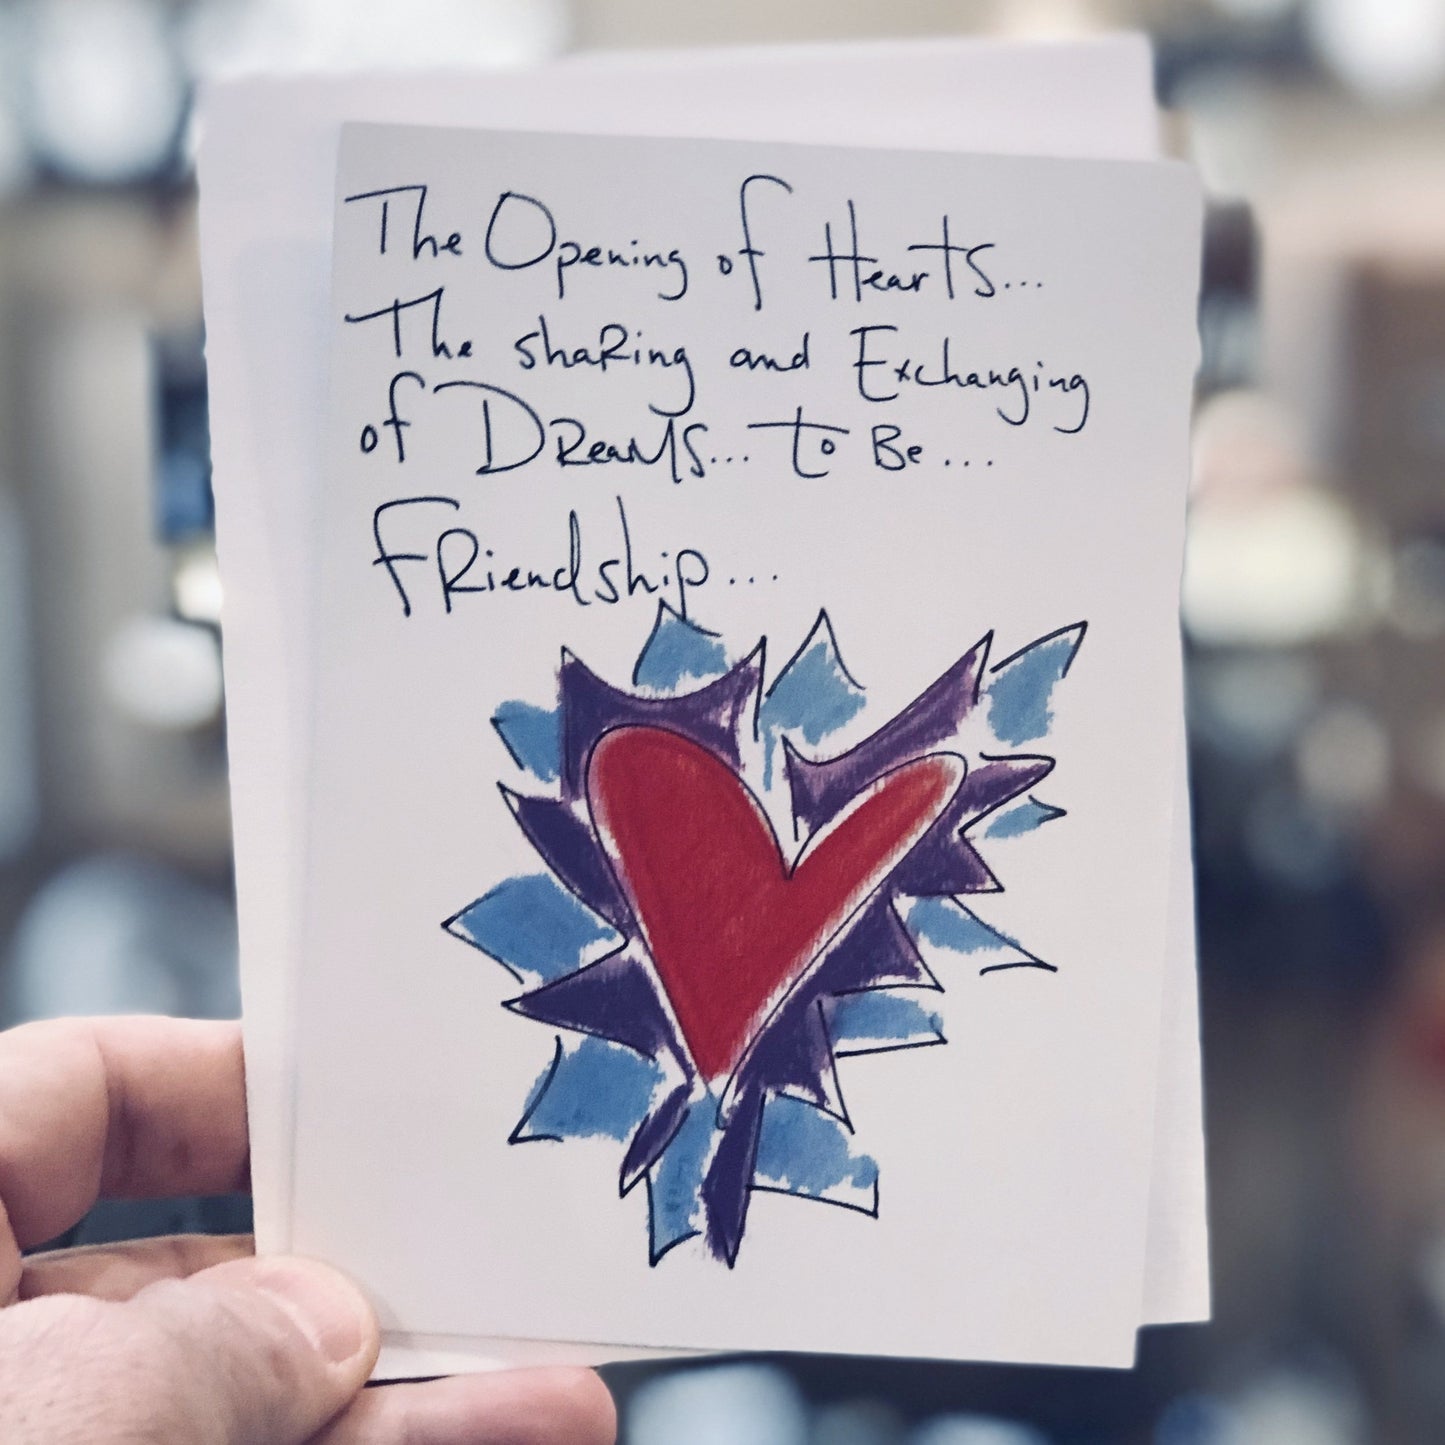 The Opening of Hearts...
The shaRing and Exchanging
of DReaMS... to Be...
FRiendship...